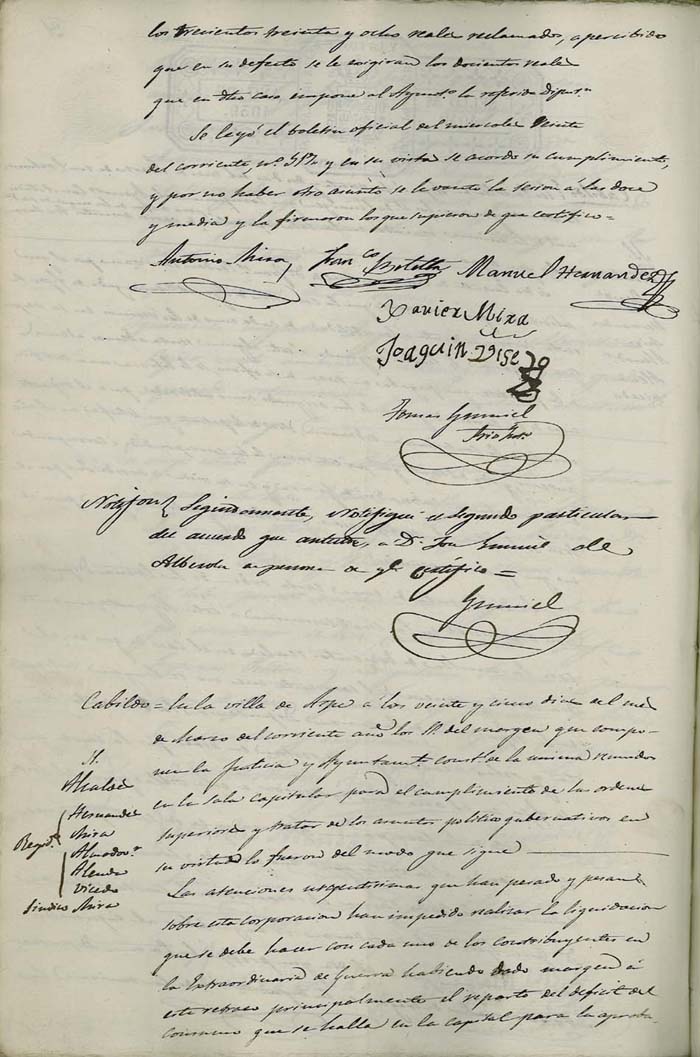 los trecientos treinta y ocho reales reclamados, apercibido
que en su defecto se le exigiran los docientos reales
que en dho caso impone al Ayunt.º la referida Dipu.n
Se leyó el boletin oficial del miercoles veinte
del corriente, nº y en su vista se acordo su cumplimiento,
y por no haber otro asunto se levantó la sesion á las doce
y media y la firmaron los que supieron de que certifico=
Antonio Mira, Fran.co Botella Manuel Hernandez
Xavier Mira
Joaquin
Tomas Gumiel
Srio
Notifon Seguidamente, Notifiqué el Segundo particular
del acuerdo que antecede, a D. Gumiel de
Alberola en persona de q.e certifico =
Gumiel
Cabildo = En la villa de Aspe á los veinte y cinco dias del mes
de Marzo del corriente año los SS. del margen que compo-
nen la Justicia y Ayuntam.to const.l de la misma reunidos
en la sala capitular para el cumplimiento de las ordenes
superiores y tratar de los asuntos politico gubernativos en
su virtud lo fueron del modo que sigue
Las atenciones urgentisimas que han pesado y pesan
sobre esta corporacion han impedido realizar la liquidacion
que se debe hacer con cada uno de los contribuyentes en
la Extraordinaria de Guerra habiendo dado margen á
este retraso principalmente el reparto del deficit del
consumo que se halla en la capital para la aproba-
SS.
Alcalde
Regid.s
Hernandez
Mira
Almodov.r
Alenda
Vicedo
Sindico Mira